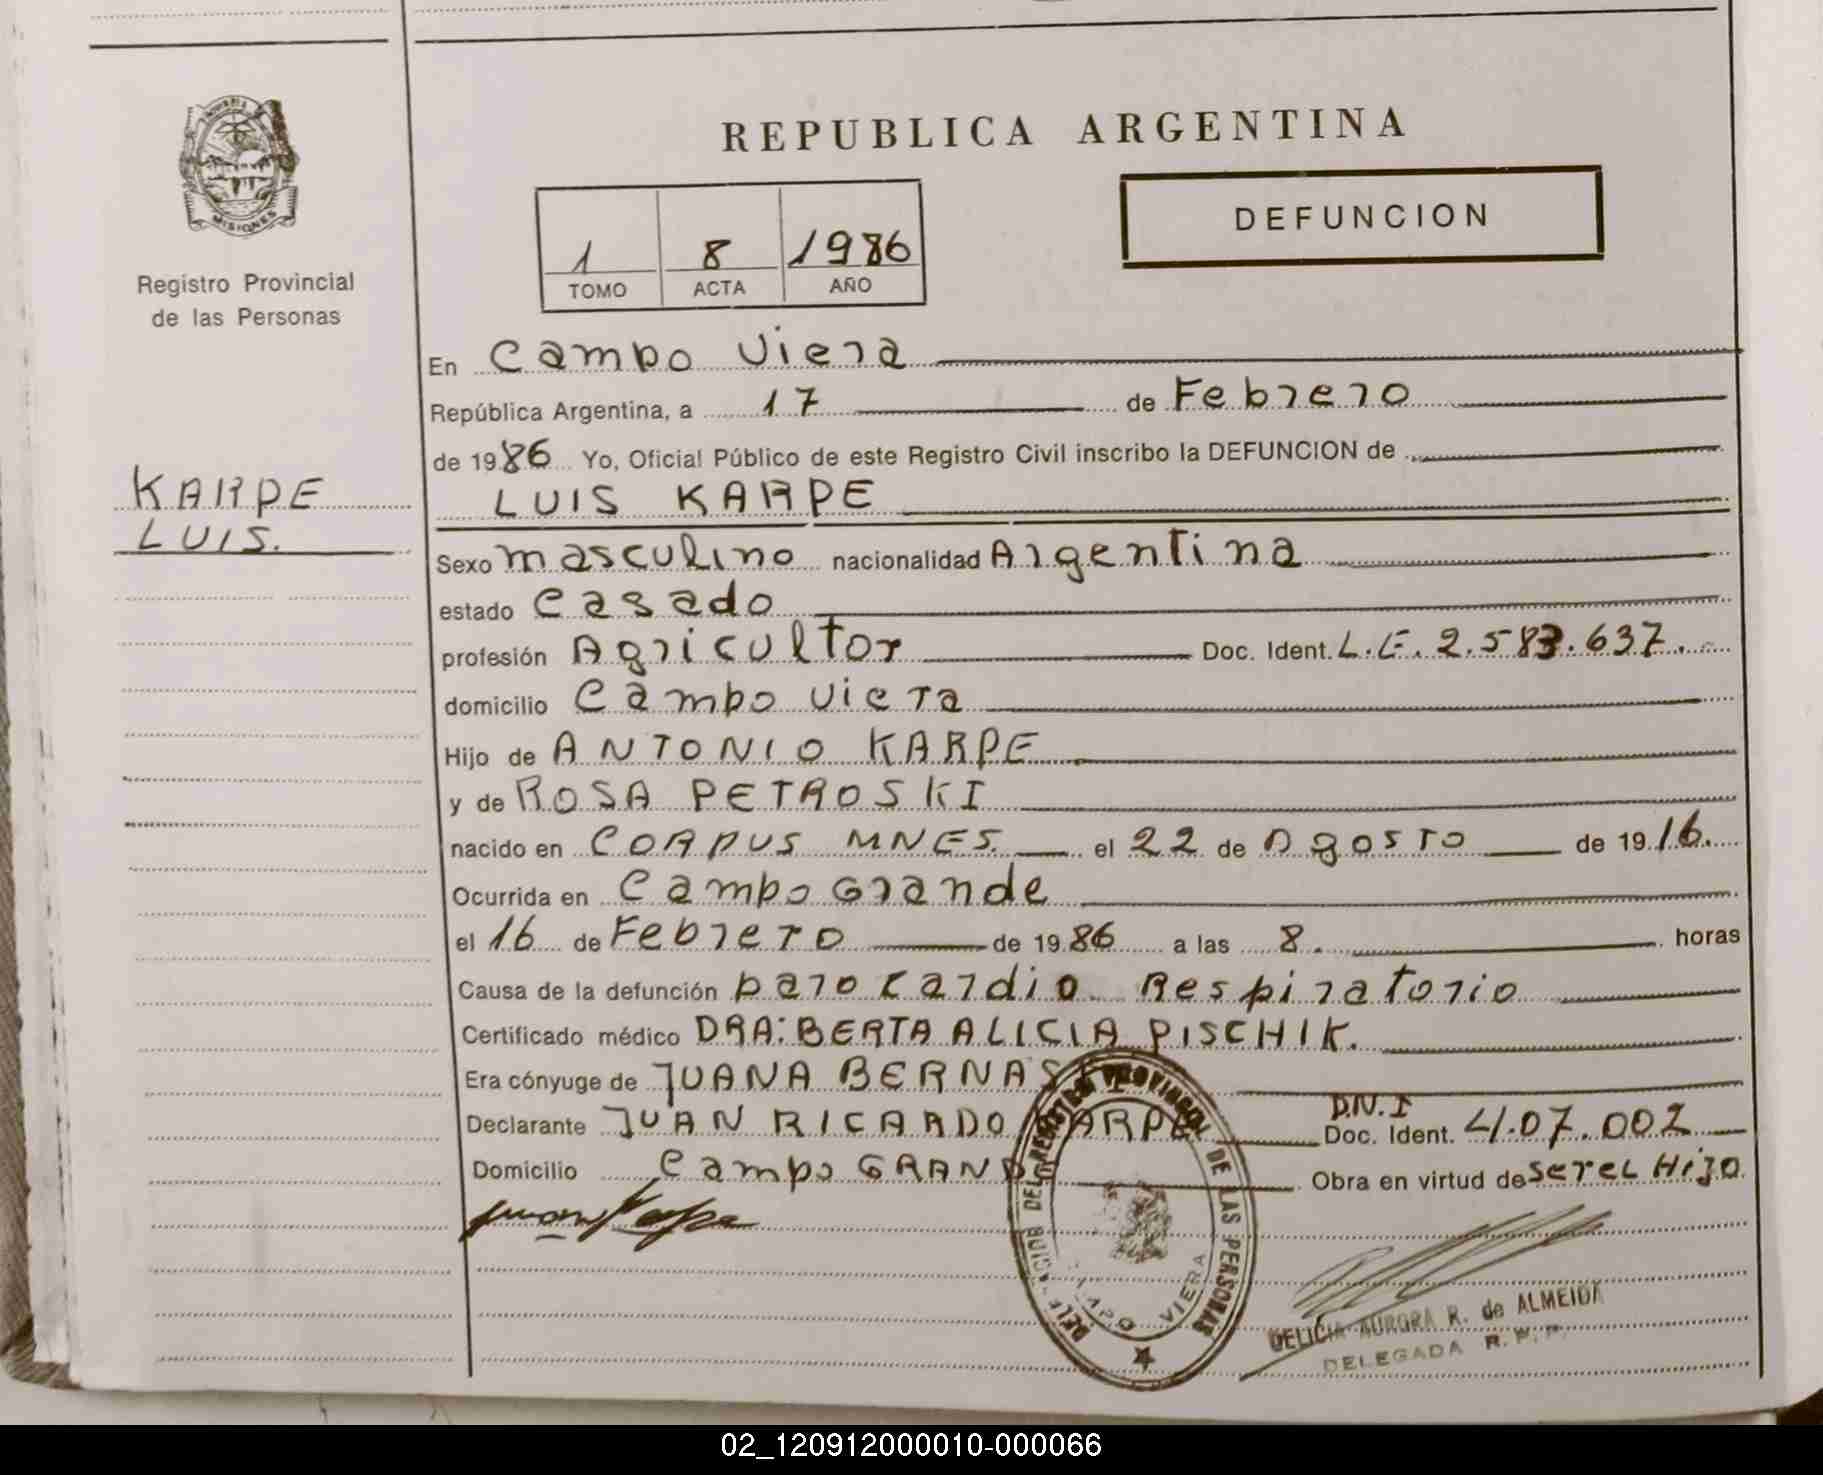 REPUBLICA ARGENTINA
DEFUNCION
MISIONES
Registro Provincial
de las Personas
1 8 1986
TOMO ACTA AÑO
En Campo Viera
República Argentina, a 17 de Febrero
de 1986 Yo, Oficial Público de este Registro Civil inscribo la DEFUNCION de
KARPE
LUIS.
LUIS KARPE
Sexo masculino nacionalidad Argentina
estado Casado
profesión Agricultor Doc. Ident. L.E. 2.583.637.
domicilio Campo Viera
Hijo de ANTONIO KARPE
y de ROSA PETROSKI
nacido en CORPUS MNES. el 22 de Agosto de 1916.
Ocurrida en Campo Grande
el 16 de Febrero de 1986 a las 8. horas
Causa de la defunción paro cardio Respiratorio
Certificado médico DRA: BERTA ALICIA PISCHIK.
Era cónyuge de JUANA
Declarante JUAN RICARDO KARPE D.N.I Doc. Ident. 4.07.002
Domicilio Campo GRANDE Obra en virtud de ser el Hijo
DELEGACION DEL REGISTRO PROVINCIAL DE LAS PERSONAS
CAMPO VIERA
DELICIA AURORA R. de ALMEIDA
DELEGADA R. P. P.
02_120912000010-000066